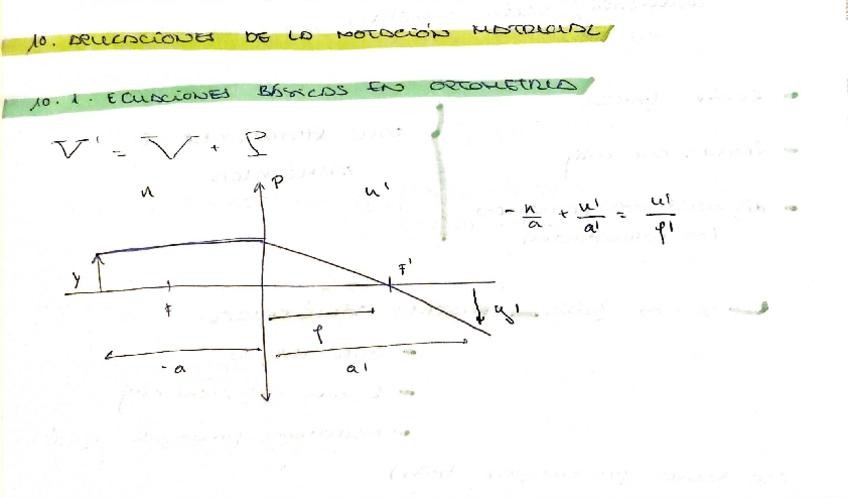 10. APLICACIONES DE LA NOTACIÓN MATRICIAL
10. 1. ECUACIONES BÁSICAS EN OPTOMETRÍA
V' = V + P
n
P
n'
- n/a + n'/a' = n'/f'
y
F
F'
f
y'
-a
a'